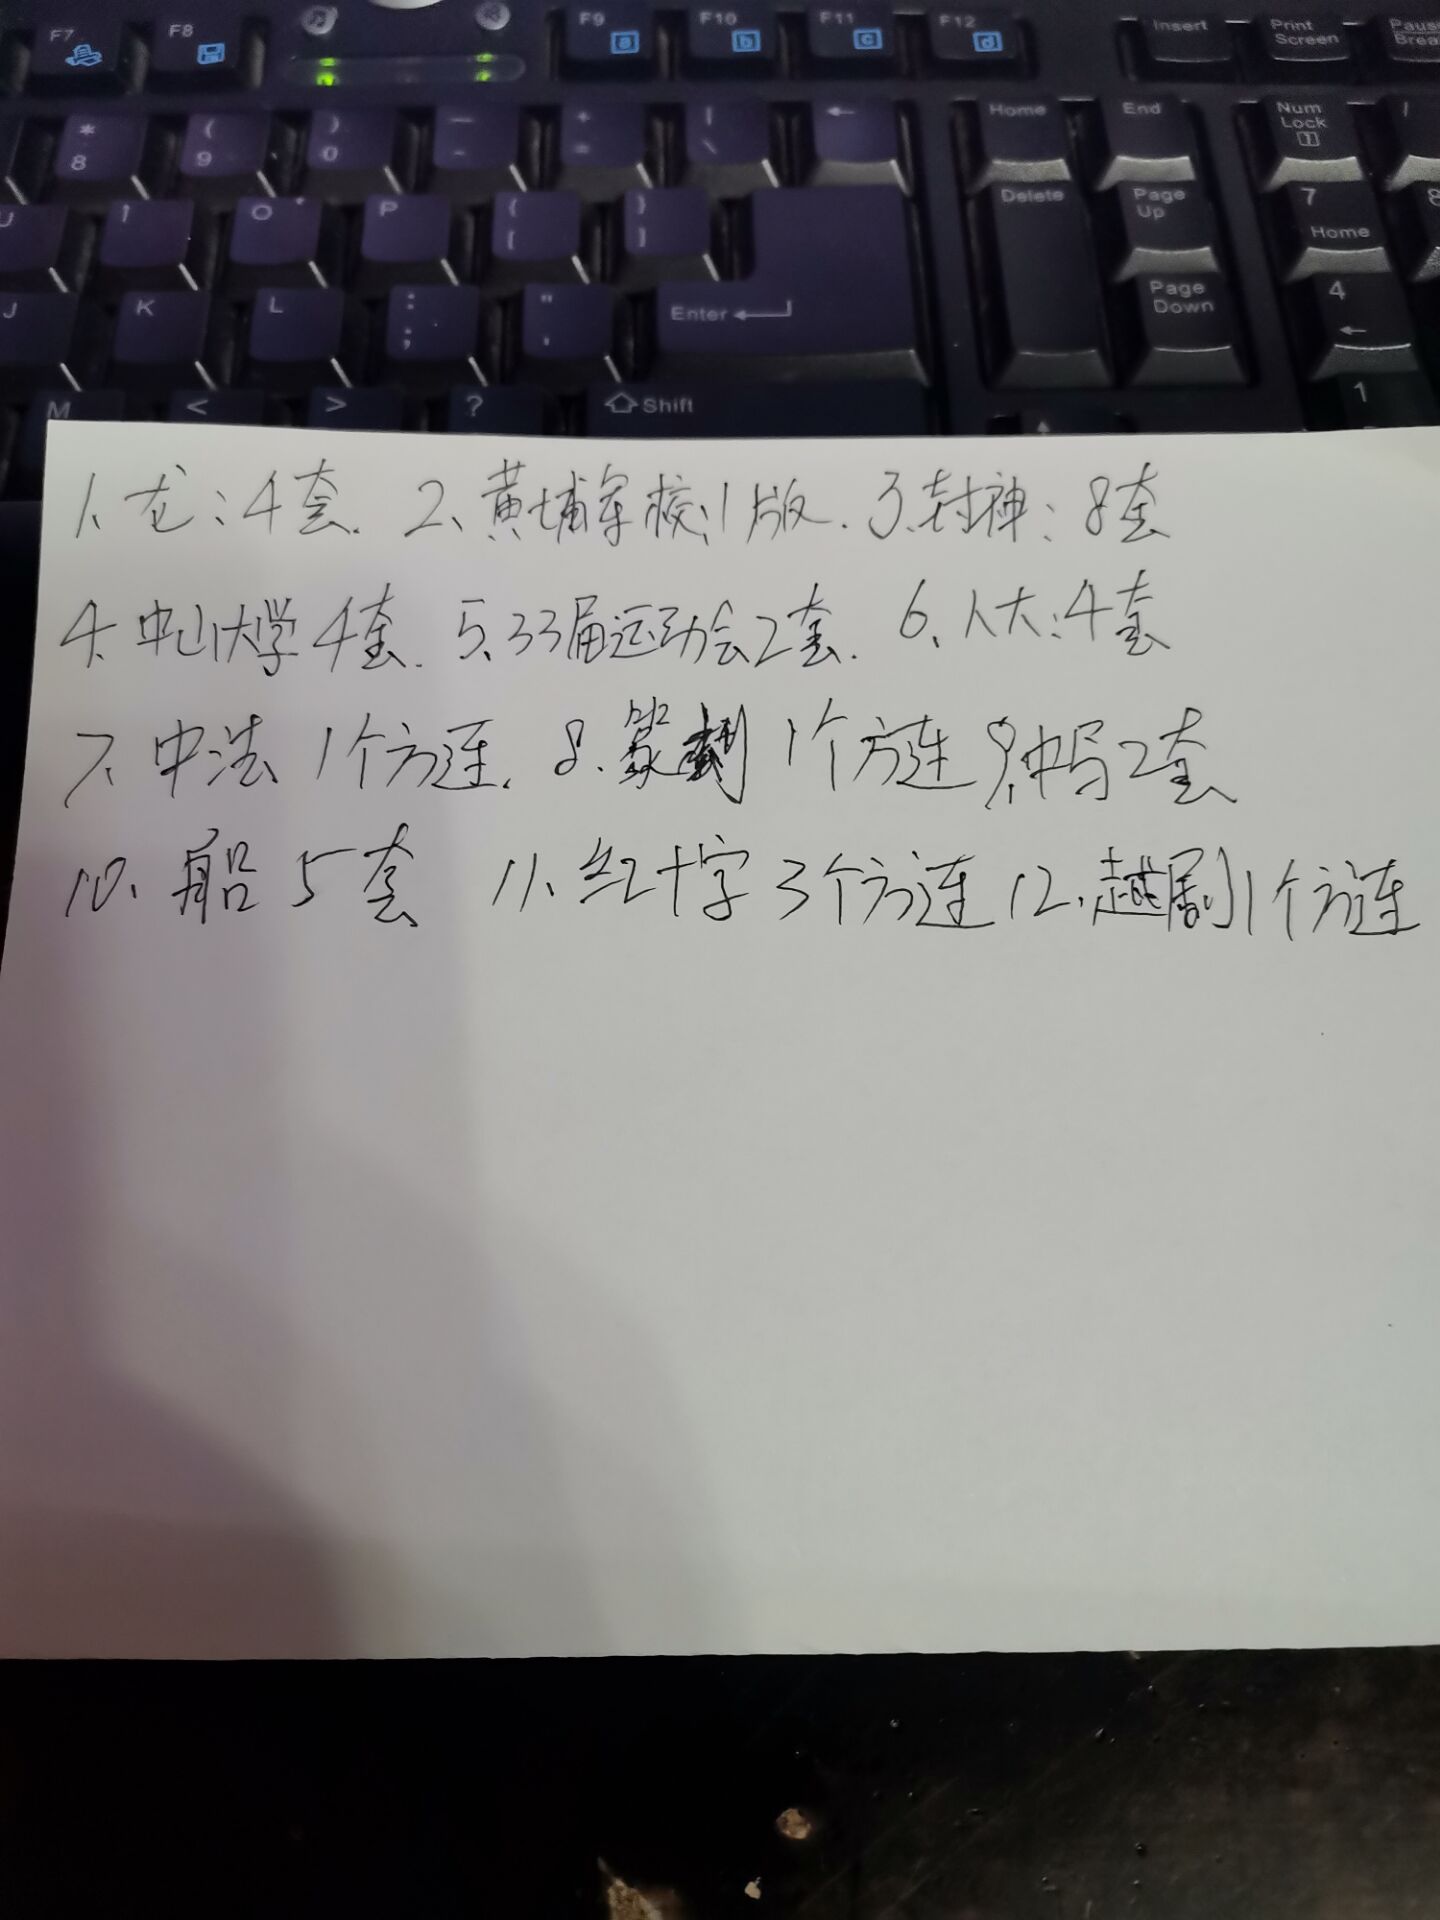 F7 F8 F9 F10 F11 F12 Insert Print Screen Pause Break
* 8 ( 9 ) 0 — - + = | \ ← Home End Num Lock /
U I O P { [ } ] Delete Page Up 7 Home 8
J K L : ; " ' Enter Page Down 4 ←
M < > ? Shift 1
1、龙:4套. 2、黄埔军校:1版. 3.封神:8套
4. 中山大学4套. 5.33届运动会2套. 6、人大:4套
7. 中法 1个方连. 8.篆刻 1个方连 9.中马2套
10、船5套 11、红十字3个方连 12.越剧1个方连